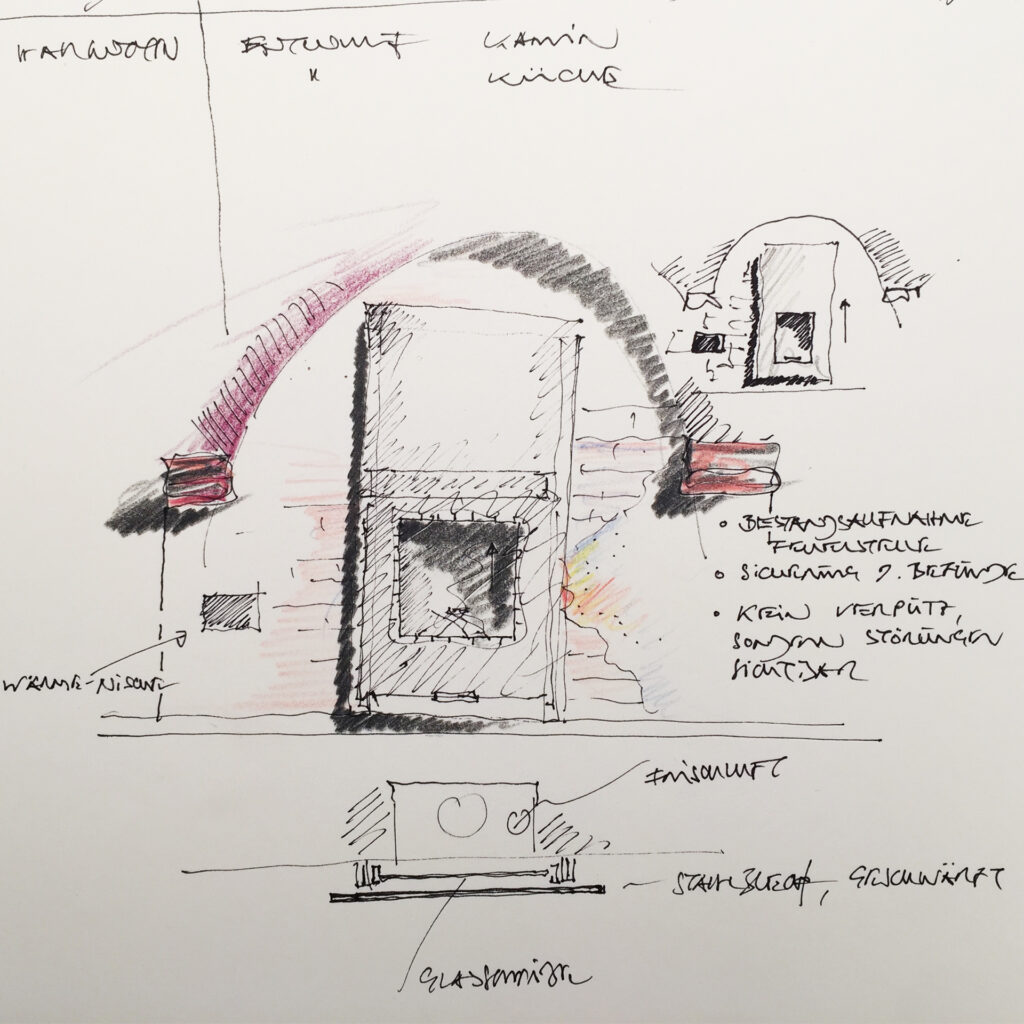 ENTWURF KAMIN
" KÜCHE
BESTANDSAUFNAHME
FEUERSTELLE
SICHERUNG D. BEFUNDE
KEIN VERPUTZ,
SONDERN STÖRUNGEN
SICHTBAR
WÄRME-NISCHE
FRISCHLUFT
STAHLBLECH, GESCHWÄRZT
GLASSCHEIBE